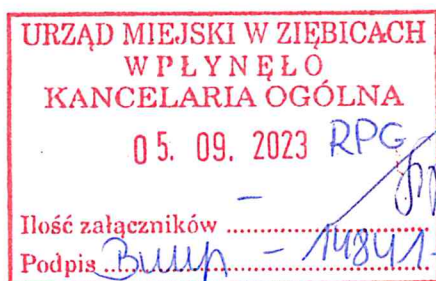 URZĄD MIEJSKI W ZIĘBICACH
WPŁYNĘŁO
KANCELARIA OGÓLNA
05. 09. 2023 RPG
Ilość załączników .......... -
Podpis .......... - 14841-